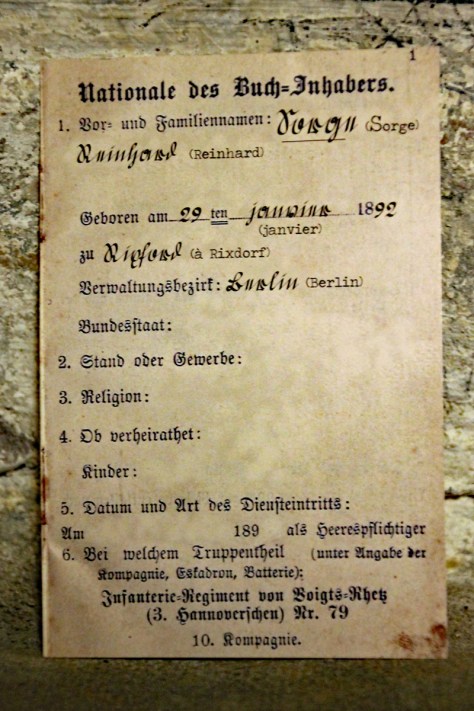 1
Nationale des Buch=Inhabers.
1. Vor= und Familiennamen: Sorge (Sorge)
Reinhard (Reinhard)
Geboren am 29 ten janvier 1892
(janvier)
zu Rixdorf (à Rixdorf)
Verwaltungsbezirk: Berlin (Berlin)
Bundesstaat:
2. Stand oder Gewerbe:
3. Religion:
4. Ob verheirathet:
Kinder:
5. Datum und Art des Diensteintritts:
Am 189 als Heerespflichtiger
6. Bei welchem Truppentheil (unter Angabe der
Kompagnie, Eskadron, Batterie):
Infanterie=Regiment von Voigts=Rhetz
(3. Hannoverschen) Nr. 79
10. Kompagnie.